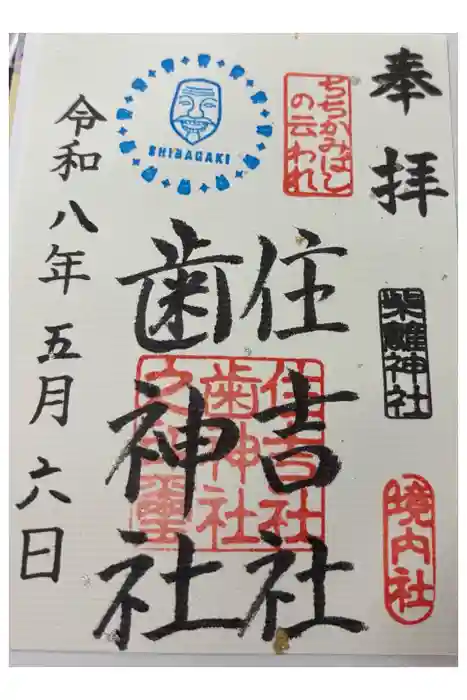 奉拝
柴籬神社
境内社
ちちかみばし
の云われ
住吉社
歯神社
住吉社
歯神社
之印璽
SHIBAGAKI
令和八年五月六日